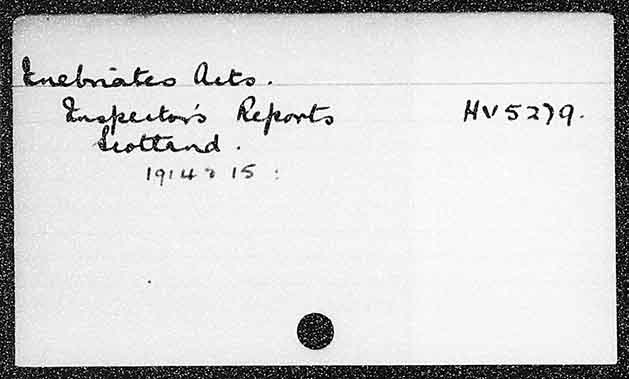 Inebriates Acts.
Inspector's Reports HV5279.
Scotland.
1914 & 15 :